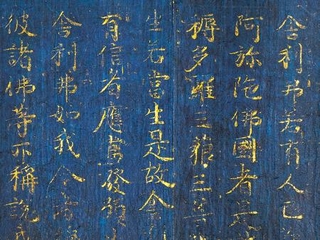 舍利弗若有人已
阿弥陀佛國者是
耨多羅三藐三菩
生若當生是故舍
有信者應當發願
舍利弗如我今者
彼諸佛等亦稱說我